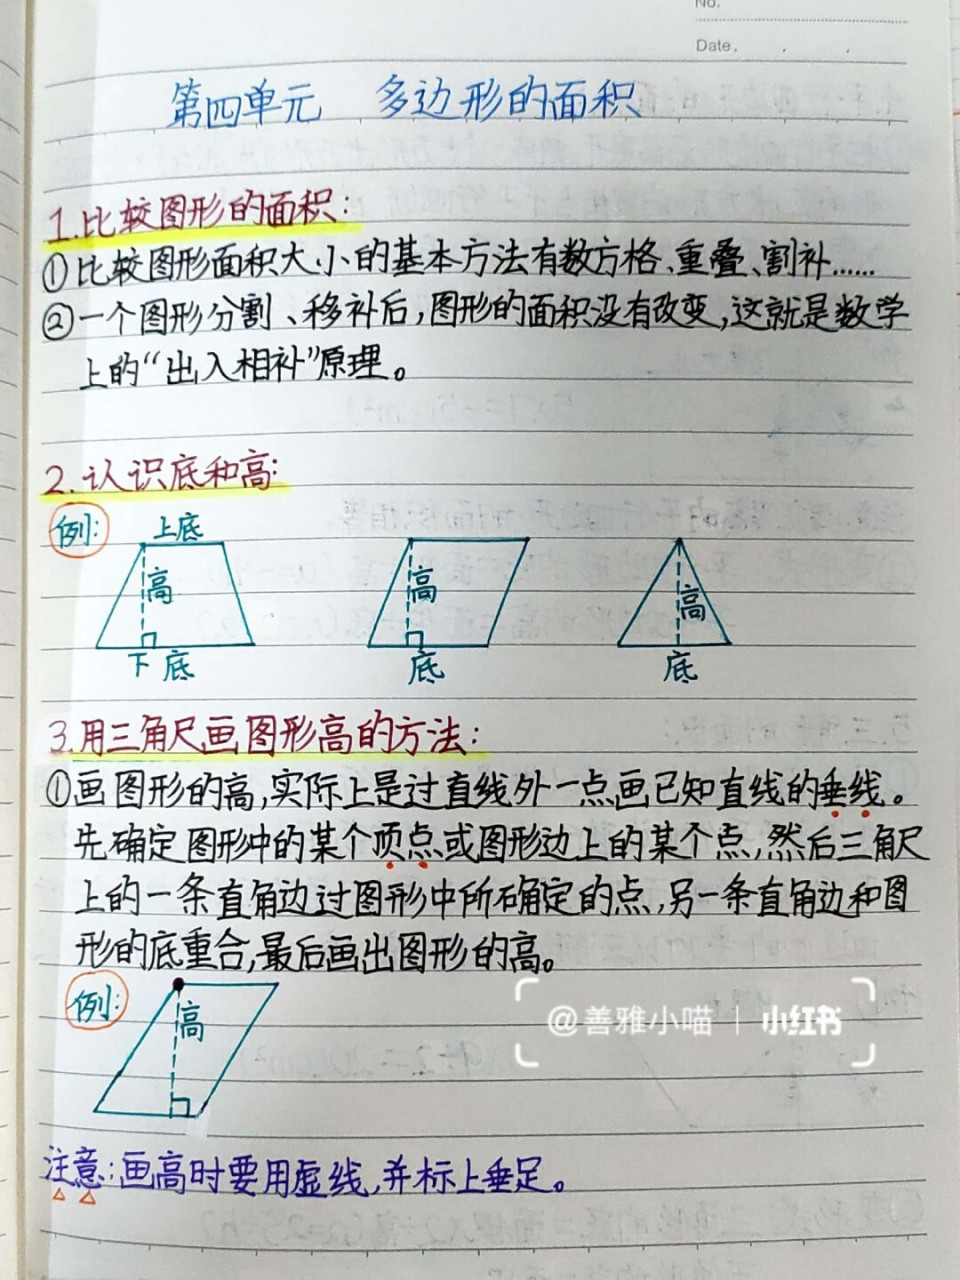 No.
Date.
第四单元 多边形的面积
1.比较图形的面积:
①比较图形面积大小的基本方法有数方格、重叠、割补……
②一个图形分割、移补后,图形的面积没有改变,这就是数学
上的“出入相补”原理。
2.认识底和高:
例:
上底
高
下底
高
底
高
底
3.用三角尺画图形高的方法:
①画图形的高,实际上是过直线外一点画已知直线的垂线。
先确定图形中的某个顶点或图形边上的某个点,然后三角尺
上的一条直角边过图形中所确定的点,另一条直角边和图
形的底重合,最后画出图形的高。
例:
高
@善雅小喵 | 小红书
注意:画高时要用虚线,并标上垂足。